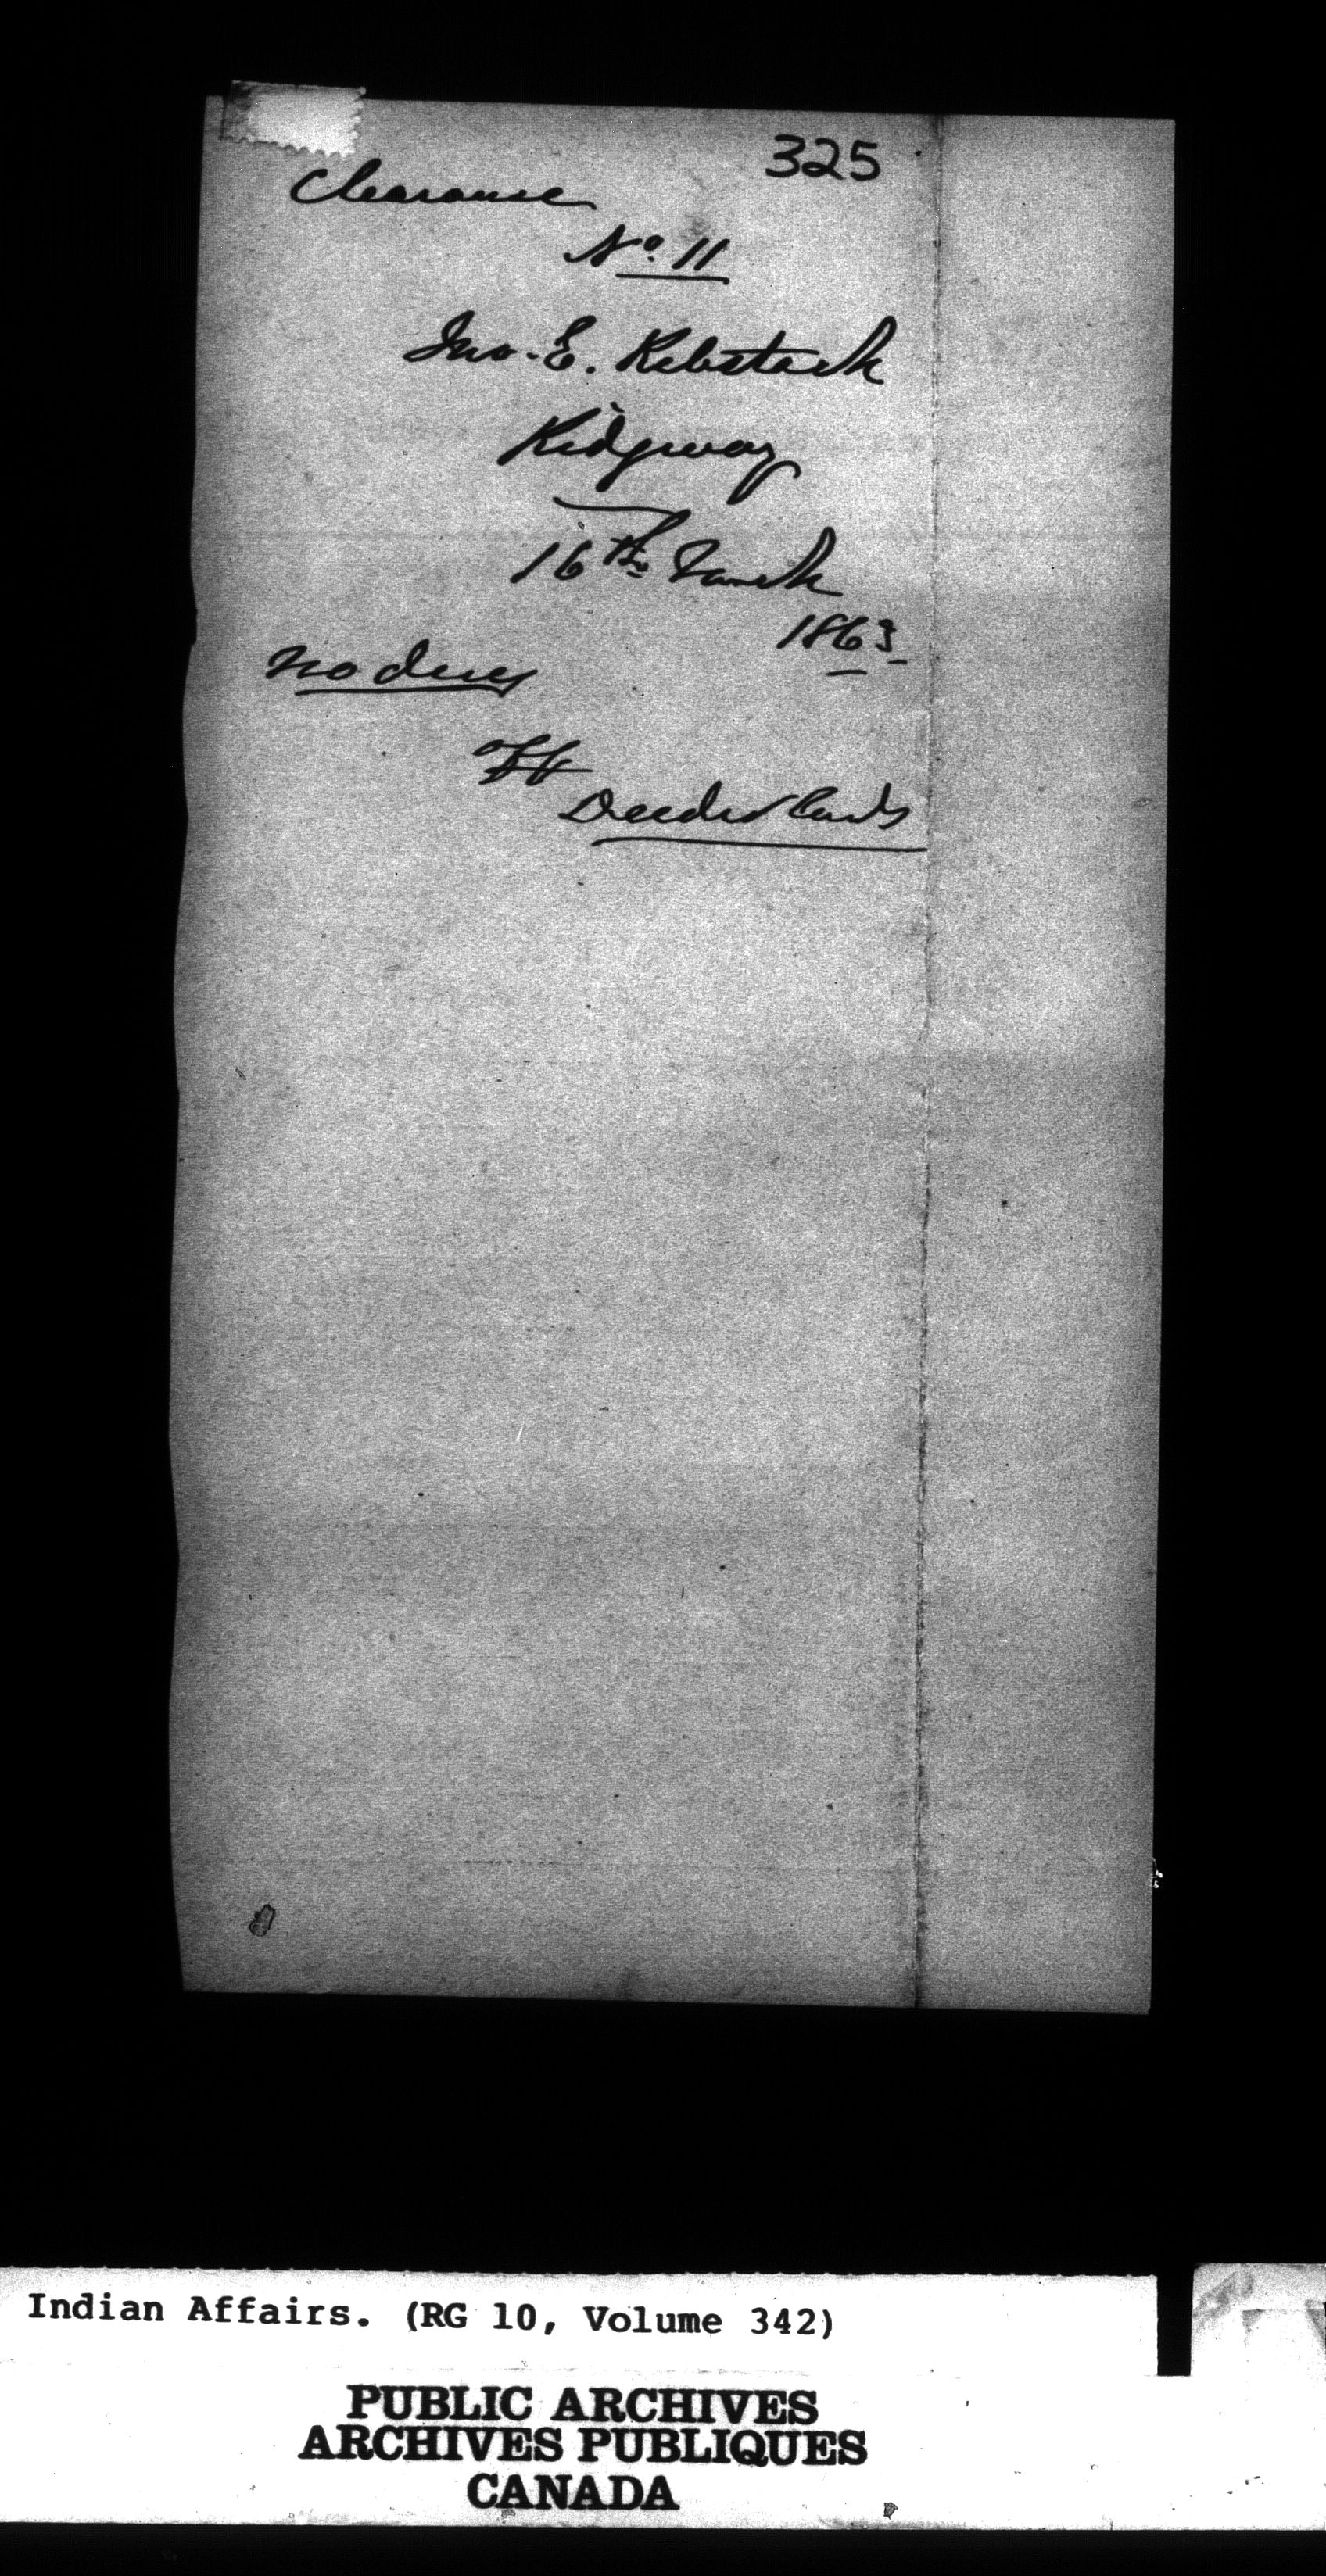 325
Clearance
No. 11
Jno. E. Rebstock
Ridgeway
16th March
1863
no dues
off
Deeded lands
Indian Affairs. (RG 10, Volume 342)
PUBLIC ARCHIVES
ARCHIVES PUBLIQUES
CANADA